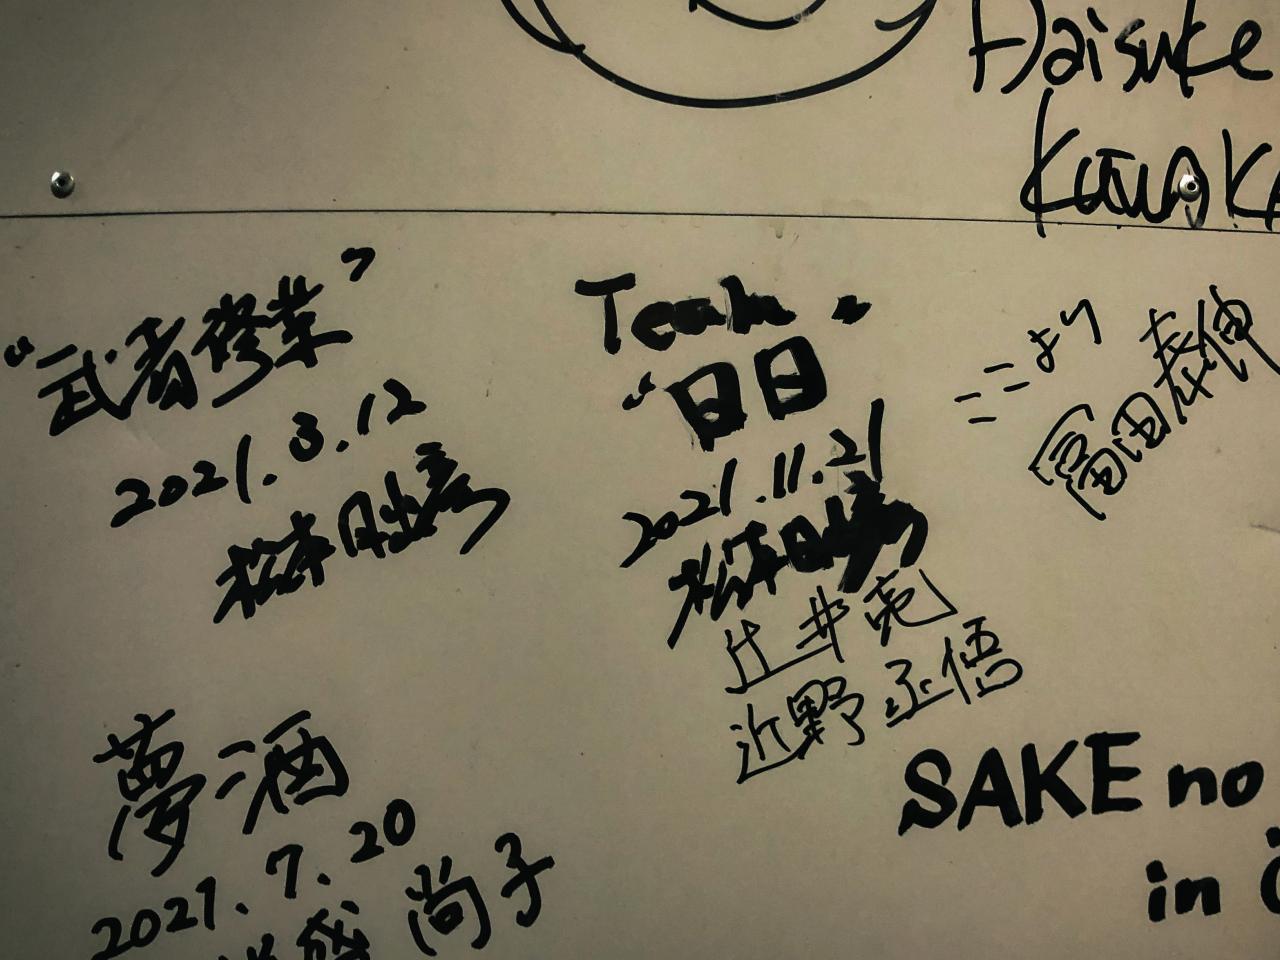 Daisuke
"武者修業"
2021.3.12
松本日出彦
Team
"日日"
2021.11.21
松本日出彦
辻井亮
近野丞悟
ここより
冨田泰伸
夢酒
2021.7.20
尚子
SAKE no
in